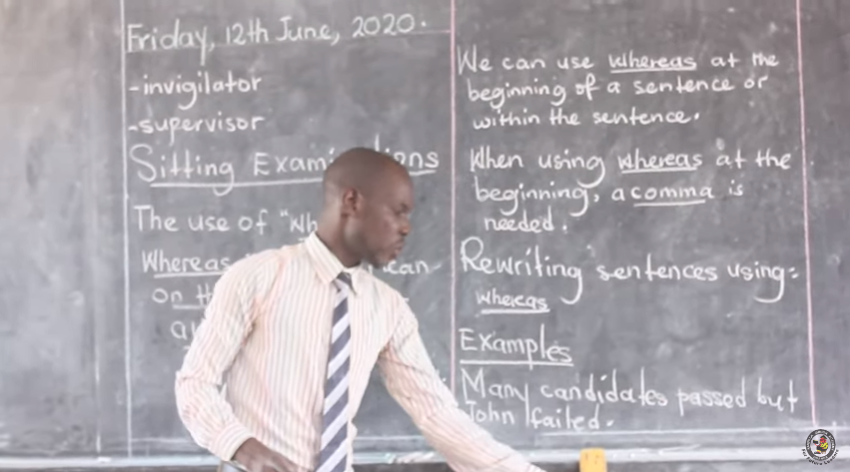 Friday, 12th June, 2020.
-invigilator
-supervisor
Sitting
The use of
Whereas
on
We can use whereas at the
beginning of a sentence or
within the sentence.
When using whereas at the
beginning, a comma is
needed.
Rewriting sentences using:
whereas
Examples
Many candidates passed but
John failed.